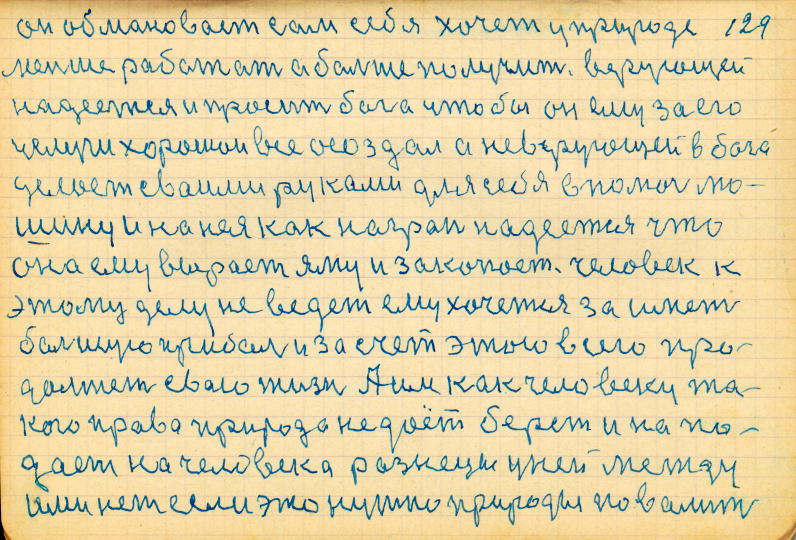 он обмановает сам себя хочет у природе 129
менше работат а болше получит. верующей
надеется и просит бога чтобы он ему за его
целуи хорошои все создал а неверующей в бога
делает сваими руками для себя в помоч мо-
шину и на нея как на рап надеется что
она ему вырает яму и закопоет. человек к
этому делу не ведет ему хочется за имет
болшую прибал и за счет этого всего про-
должет сваю жизн А им как человеку та-
кого права природа не доёт берет и на по-
дает на человека разнецы у ней между
ими нет если это нужно природы повалит